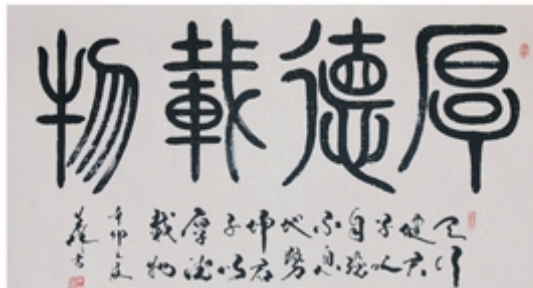 厚德載物
天行
健君
子以
自強
不息
地勢
坤君
子以
厚德
載物
辛卯